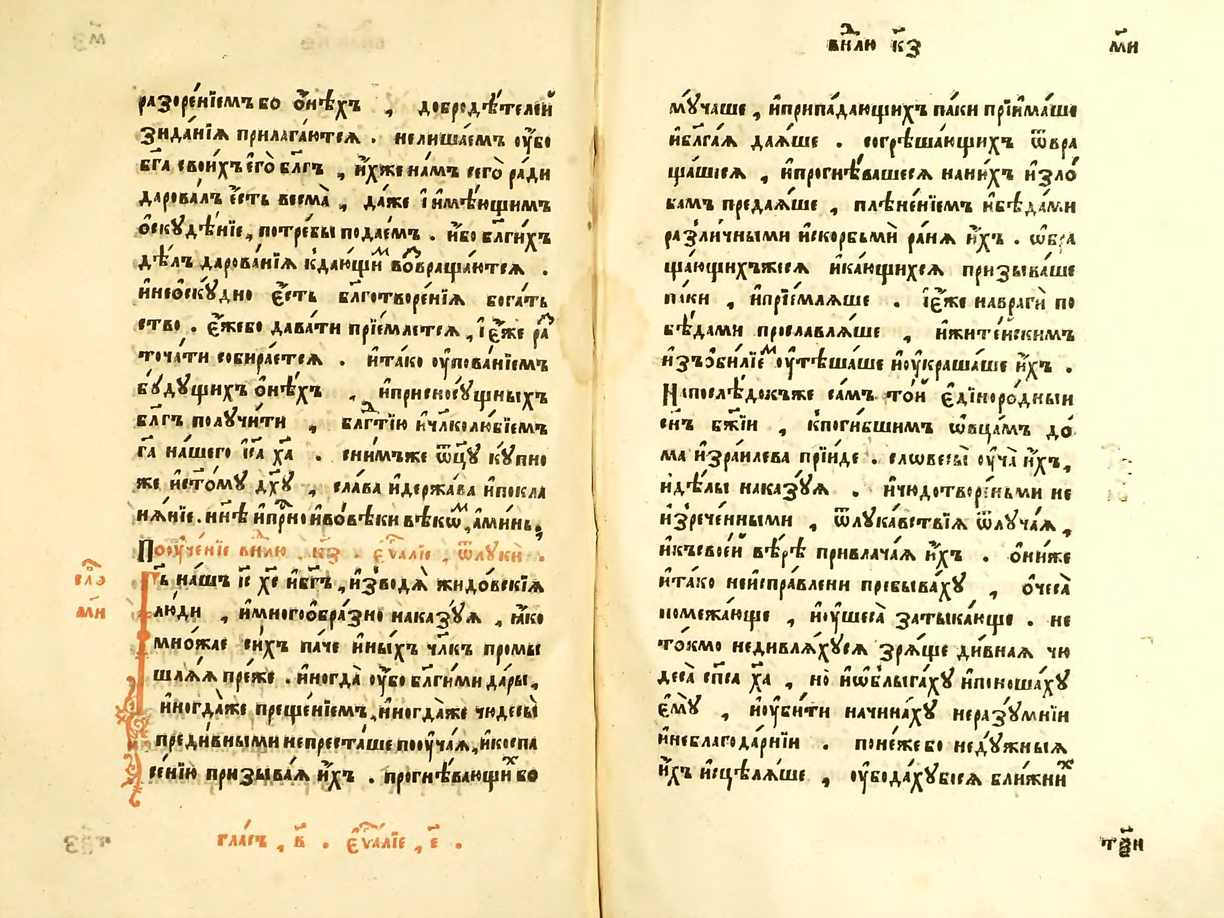 разоре́нїемъ бо ѻ҆́нѣхъ , добродѣ́телей
зида́нїѧ прилага́ютсѧ . нелиша́емъ оу҆́бо
бг҃а свои́хъ є҆го̀ бл҃гъ , и҆́хже на́мъ сего̀ ра́ди
дарова́лъ є҆́сть весма̀ , да́же и҆ и҆мѣ́ющимъ
ѻ҆скꙋдѣ́нїе , потре́бы подае́мъ . и҆́бо бл҃ги́хъ
дѣ́лъ дарова́нїѧ к̾даю́щиⷨ воⷥвраща́ютсѧ .
и҆неѻ҆скꙋ́дно є҆́сть бл҃готворе́нїѧ бога́ть
ство . є҆́жебо дава́ти прїе́млетсѧ , и҆ є҆́же раⷥ
точа́ти собира́етсѧ . и҆та́ко оу҆пова́нїемъ
бꙋ́дꙋщихъ ѻ҆́нѣхъ , и҆присносꙋ́щныхъ
бл҃гъ полꙋчи́ти , блгⷣтїю и҆чл҃колю́бїемъ
га҃ на́шего і҆с҃а х҃а . сни́мъже ѿц҃ꙋ кꙋ́пно
же и҆ст҃о́мꙋ дх҃ꙋ , сла́ва и҆держа́ва и҆покла
нѧ́нїе . нн҃ѣ и҆при́сно и҆во́вѣки вѣкѡ́ⷨ , а҆ми́нь .
Пооуче́нїе вн҃лю , к҃з . є҆ѵⷢ҇алїе , ѿлꙋкѝ .
Гь҃ на́шъ і҆с҃ х҃е и҆бг҃ъ , и҆зводѧ̀ жидо́вскїѧ
сло
м҃и
лю́ди , и҆многоѻ҆бра́зно наказꙋ́ѧ , ꙗ҆́ко
мно́жае си́хъ па́че и҆ны́хъ чл҃къ промы
шлѧ́ѧ пре́же . и҆ногда̀ оу҆́бо бл҃ги́ми да́ры ,
и҆ногда́же преще́нїемъ , и҆ногда́же чюдесы̀
преди́вными непреста́ше пооуча́ѧ , и҆коспа
се́нїю призыва́ѧ и҆́хъ . прогнѣ́вающиⷯ бо
гла́съ , в҃ . є҆ѵⷢ҇алїе , є҃ .
тз҃з
внⷣлю к҃з
м҃и
мꙋ́чаше , и҆припа́дающихъ па́ки прїима́ше
и҆бл҃га́ѧ даѧ́ше . согрѣша́ющихъ ѿвра
ща́шесѧ , и҆прогнѣ́вашесѧ нани́хъ и҆зло́
бамъ предаѧ́ше , плѣне́нїемъ и҆бѣда́ми
разли́чными и҆скорбьмѝ ра́нѧ и҆́хъ . ѡ҆бра
ща́ющихъжесѧ и҆ка́ющихсѧ призыва́ше
па́ки , и҆прїе́млѧше . і҆є҆́же наврагѝ по
бѣ́дами прославлѧ́ше , и҆жите́йскимъ
и҆зъѻ҆би́лїеⷨ оу҆тѣша́ше и҆оу҆краша́ше и҆́хъ .
Напослѣ́докъже са́мъ то́й є҆диноро́дный
сн҃ъ бж҃їи , к̾поги́бшимъ ѻ҆вца́мъ до́
ма и҆зра́илева прїи́де . словесы̀ оу҆ча̀ и҆́хъ ,
и҆дѣ́лы наказꙋ́ѧ . и҆чюдотворе́ньми не
и҆зрече́нными , ѿлꙋка́вствїѧ ѿлꙋча́ѧ ,
и҆къевое́й вѣ́рѣ привлача́ѧ и҆́хъ . ѻ҆ни́же
и҆та́ко неи҆спра́влени пребыва́хꙋ , ѻ҆чеса̀
помежа́юще , и҆оу҆шеса̀ затыка́юще . не
то́кмо недивлѧ́хꙋсѧ зрѧ́ще ди́внаѧ чю
деса̀ сп҃са х҃а , но̀ и҆ѡ҆блыга́хꙋ и҆поноша́хꙋ
є҆мꙋ̀ , и҆оу҆би́ти начина́хꙋ неразꙋ́мнїи
и҆неблагода́рнїи . поне́жебо недꙋ́жныѧ
и҆́хъ и҆сцѣлѧ́ше , оу҆бода́хꙋбосѧ бли́жниⷯ
тз҃и